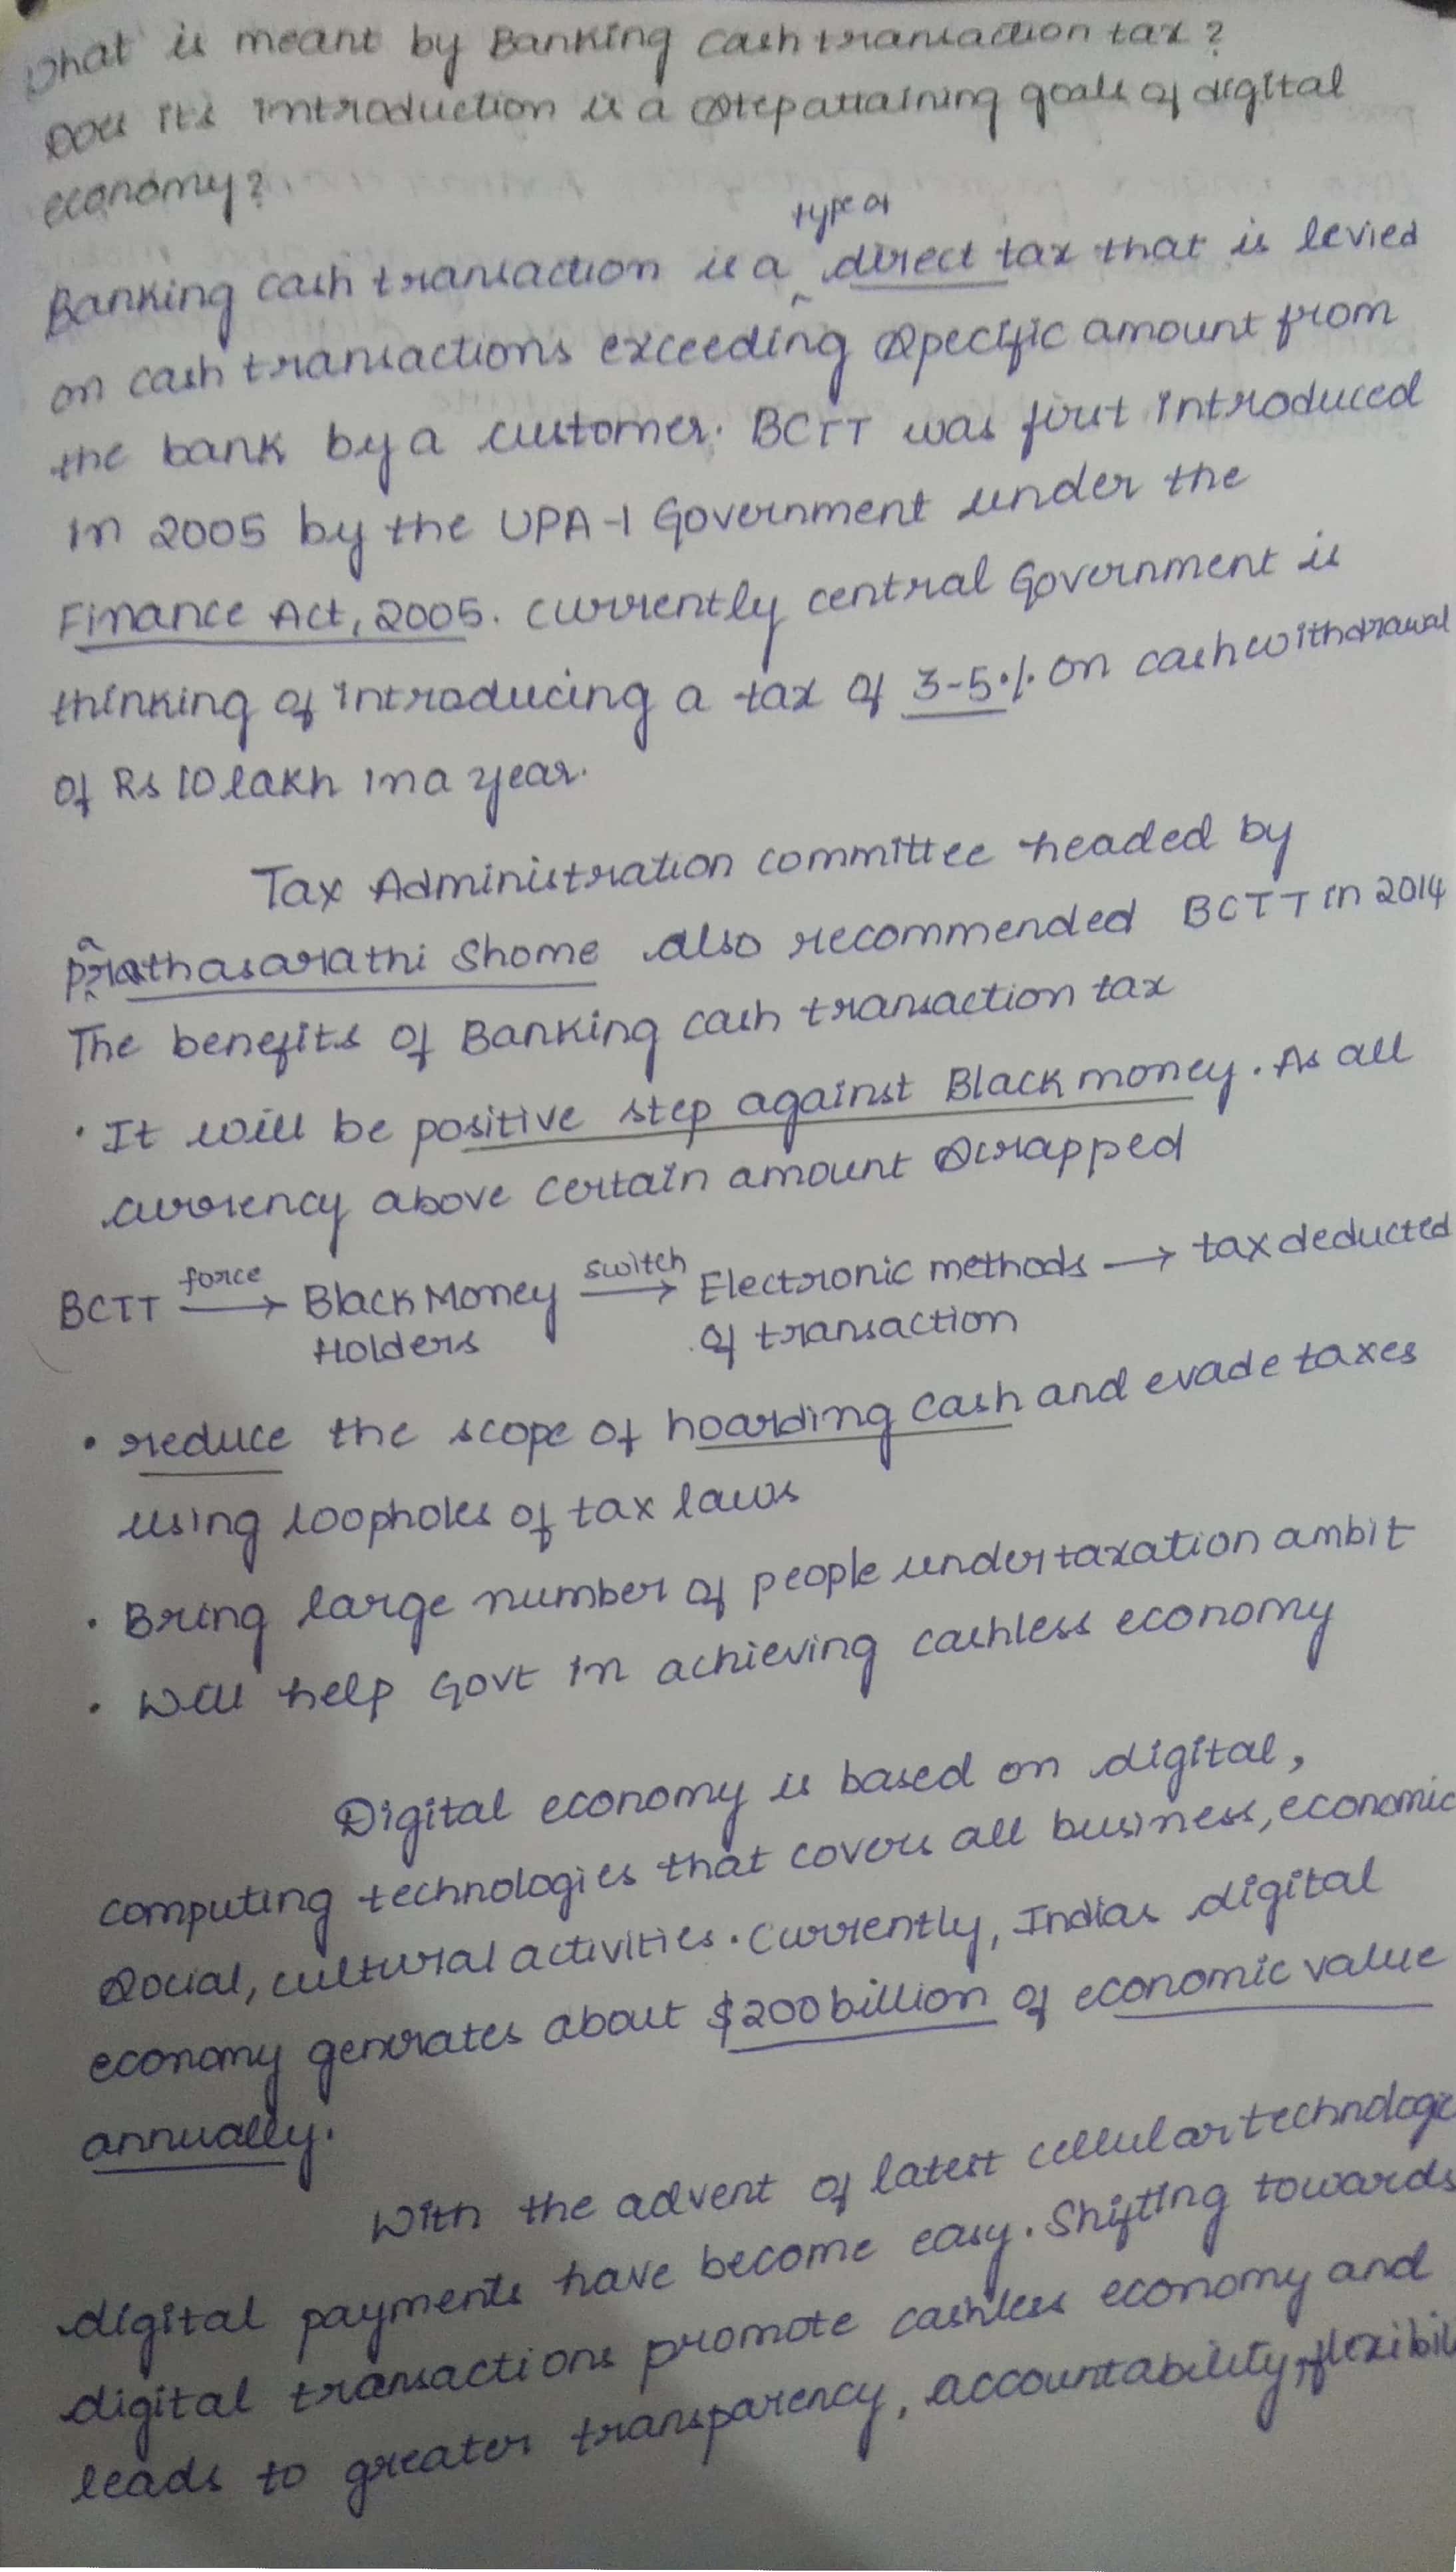 What is meant by Banking cash transaction tax?
Does its introduction is a step attaining goals of digital
economy?
type of
Banking cash transaction is a ^ direct tax that is levied
on cash transactions exceeding specific amount from
the bank by a customer. BCTT was first introduced
in 2005 by the UPA-1 Government under the
Finance Act, 2005. Currently central Government is
thinking of introducing a tax of 3-5% on cash withdrawal
of Rs 10 lakh in a year.
Tax Administration committee headed by
Prathasarathi Shome also recommended BCTT in 2014
The benefits of Banking cash transaction tax
• It will be positive step against Black money. As all
currency above certain amount scrapped
BCTT force → Black Money switch → Electronic methods → tax deducted
Holders of transaction
• reduce the scope of hoarding cash and evade taxes
using loopholes of tax laws
• Bring large number of people under taxation ambit
• Will help Govt in achieving cashless economy
Digital economy is based on digital,
computing technologies that covers all business, economic
social, cultural activities. Currently, Indias digital
economy generates about $200 billion of economic value
annually.
With the advent of latest cellular technologie
digital payments have become easy. Shifting towards
digital transactions promote cashless economy and
leads to greater transparency, accountability, flexibil